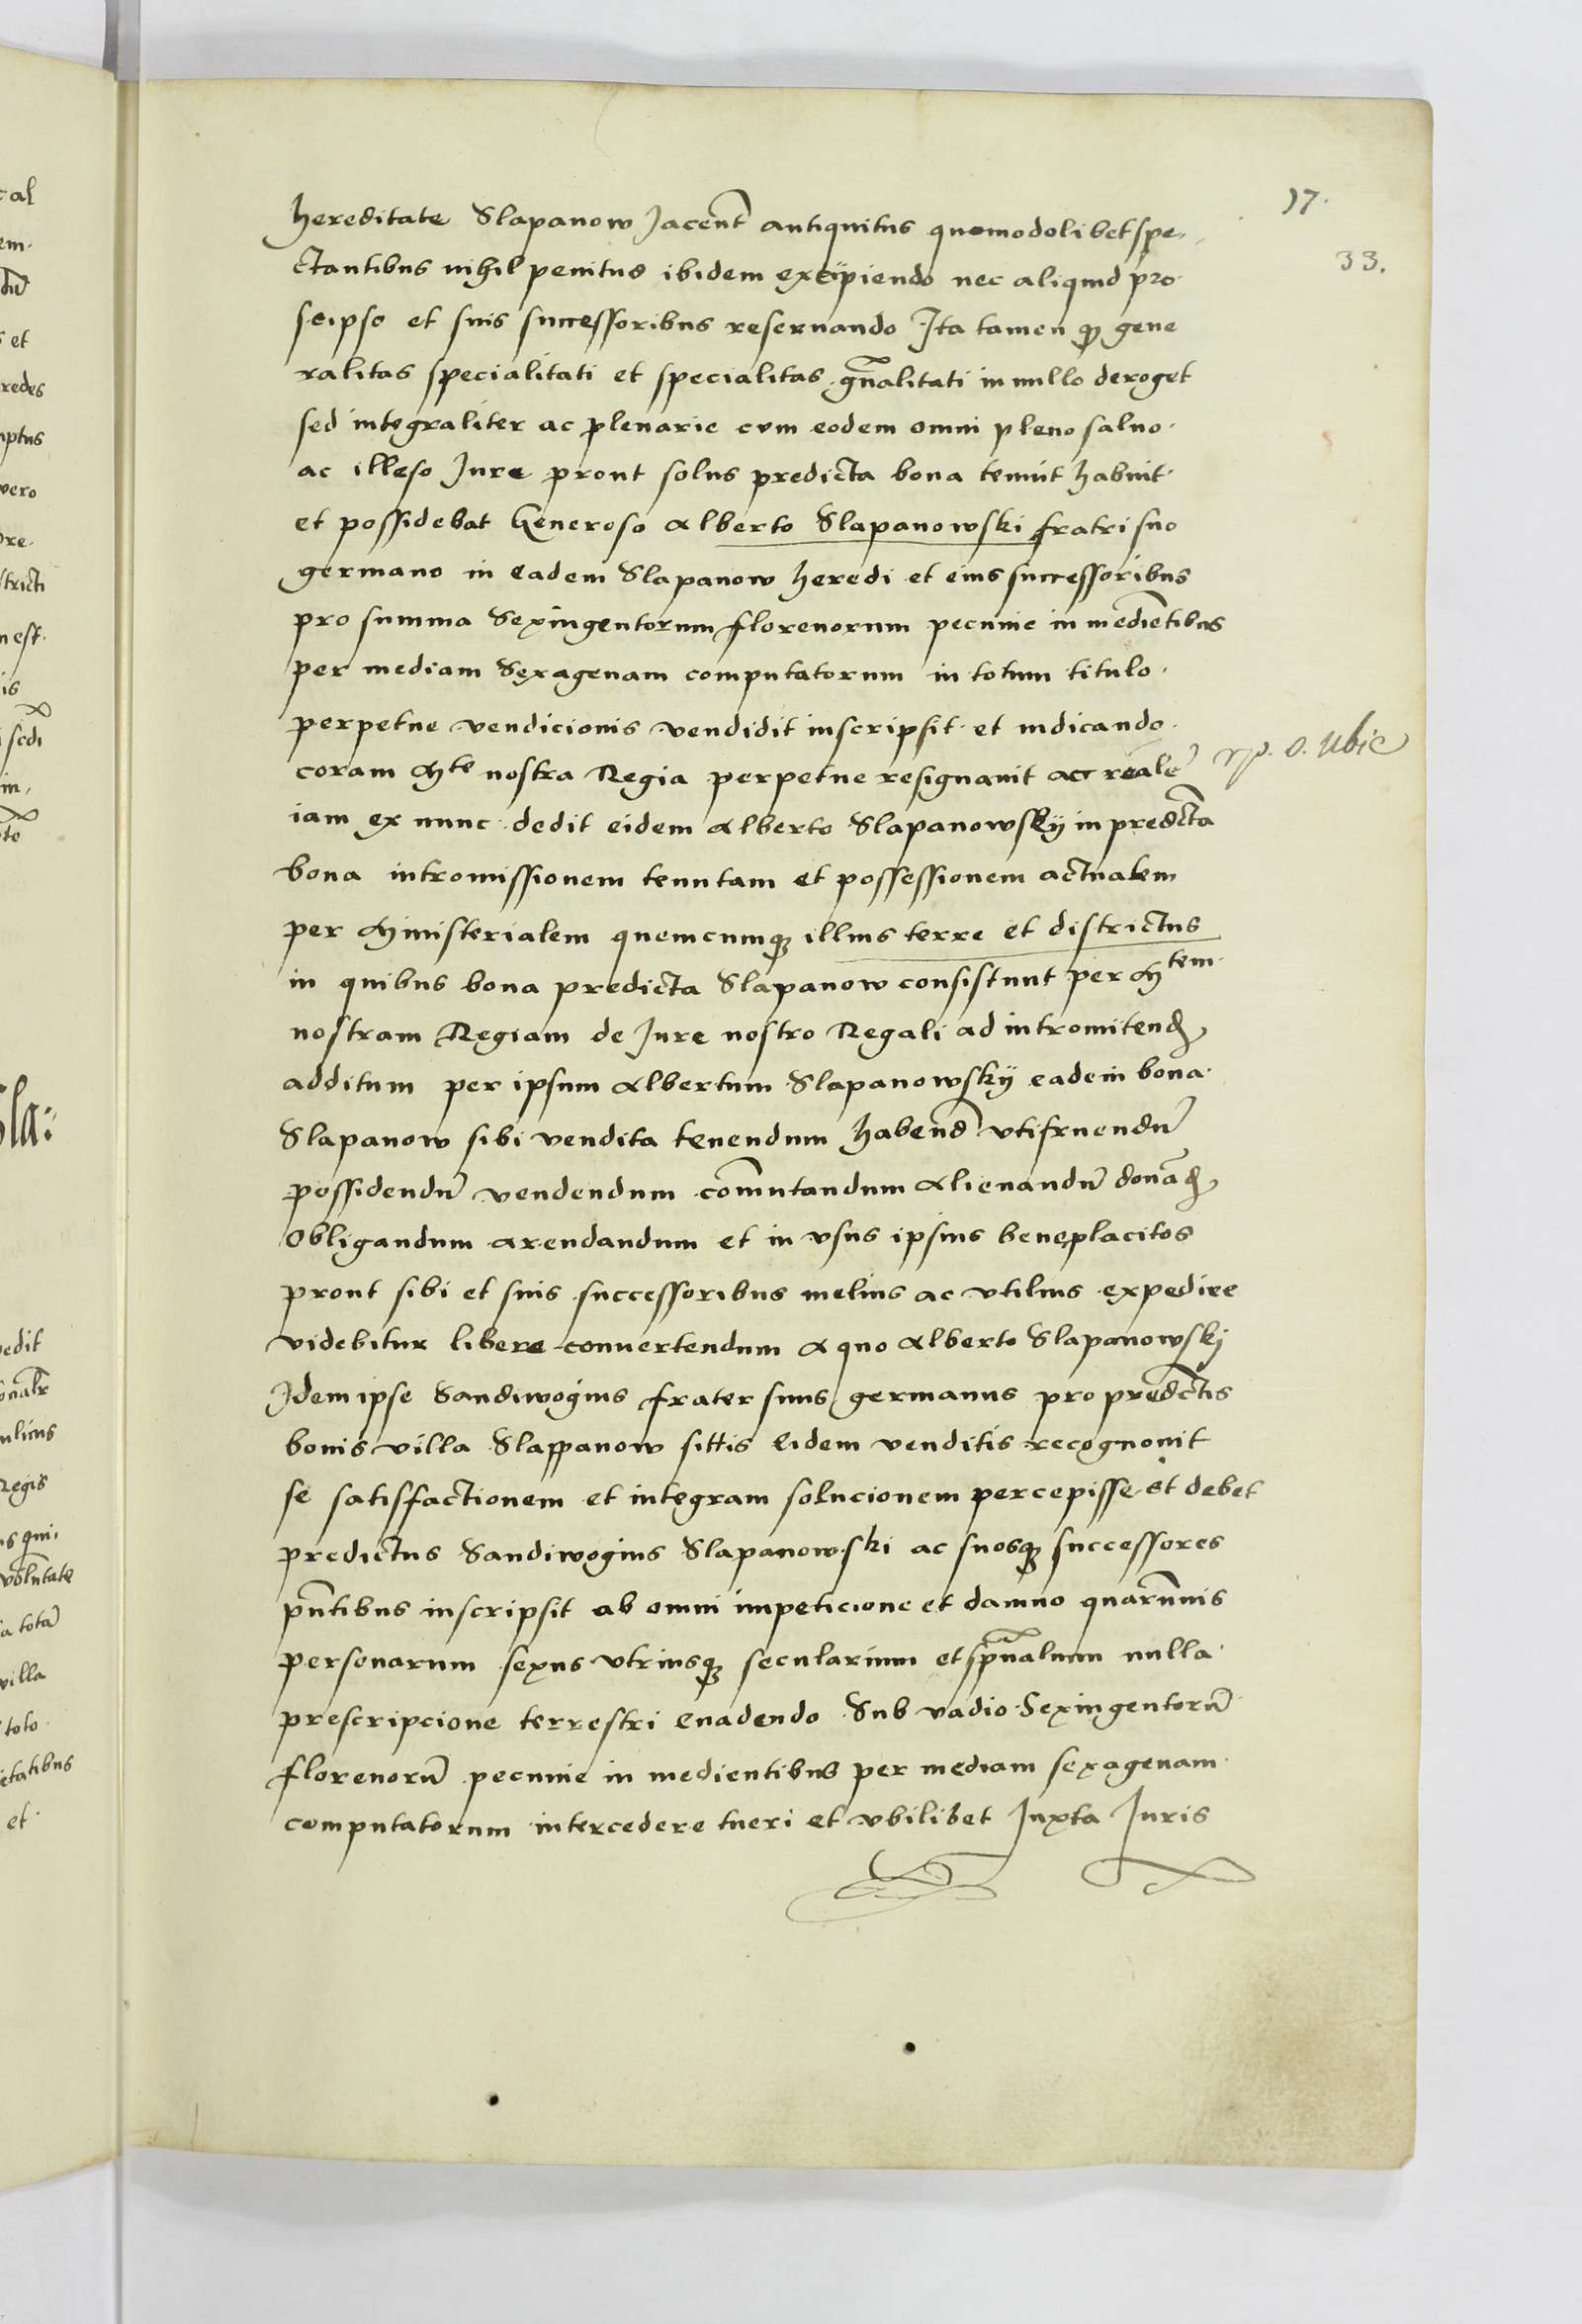 17.
33.
hereditate Slapanow Jacent̃ antiquitus quomodolibet spe-
ctantibus nihil penitus ibidem excipiendo nec aliquid pro
seipso et suis successoribus reseruando Ita tamen ꝙ gene
ralitas specialitati et specialitas gñalitati in nullo deroget
sed integraliter ac plenarie cum eodem omni pleno saluo
ac illeso Jure prout solus predicta bona tenuit habuit
et possidebat Generoso Alberto Slapanowski fratri suo
germano in eadem Slapanow heredi et eius successoribus
pro summa Sexingentorum florenorum pecunie in medientibus
per mediam Sexagenam computatorum in totum titulo
perpetue vendicionis vendidit inscripsit et indicando
coram Mte nostra Regia perpetue resignauit ac realẽ
iam ex nunc dedit eidem Alberto Slapanowsky in predcta
bona intromissionem tenutam et possessionem actualem
per Ministerialem quemcumqꝫ illius terre et districtus
in quibus bona predicta Slapanow consistunt per Mtem
nostram Regiam de Jure nostro Regali ad intromitend
additum per ipsum Albertum Slapanowskij eadem bona
Slapanow sibi vendita tenendum habend vtifruendũ
possidendũ vendendum com̃utandum Alienandũ donãd
Obligandum arendandum et in vsus ipsius beneplacitos
prout sibi et suis successoribus melius ac vtilius expedire
videbitur libere conuertendum A quo Alberto Slapanowskj
Idem ipse Sandiwogius frater suus germanus pro predctis
bonis villa Slappanow sittis Eidem venditis recognouit
se satisfactionem et integram solucionem percepisse et debet
predictus Sandiwogius Slapanowski ac suosqꝫ successores
pñtibus inscripsit ab omni impeticione et damno quarumuis
personarum sexus vtriusqꝫ secularium et spũalium nulla
prescripcione terrestri euadendo Sub vadio Sexingentorũ
florenorũ pecunie in medientibus per mediam sexagenam
computatorum intercedere tueri et vbilibet Juxta Juris